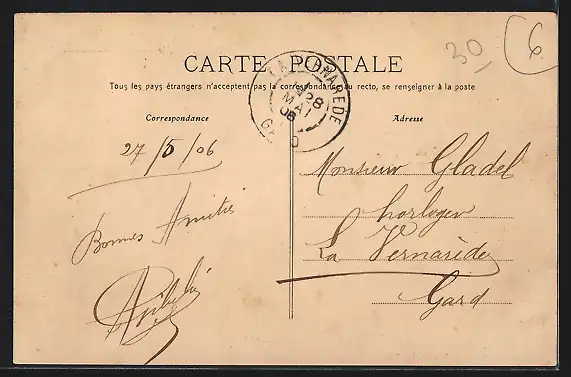 30
6
CARTE POSTALE
Tous les pays étrangers n'acceptent pas la correspondance au recto, se renseigner à la poste
LA VERNARÈDE
28
MAI
06
GARD
Correspondance
Adresse
27/5/06
Bonnes Amitiés
Monsieur Gladel
horloger
La Vernarède
Gard